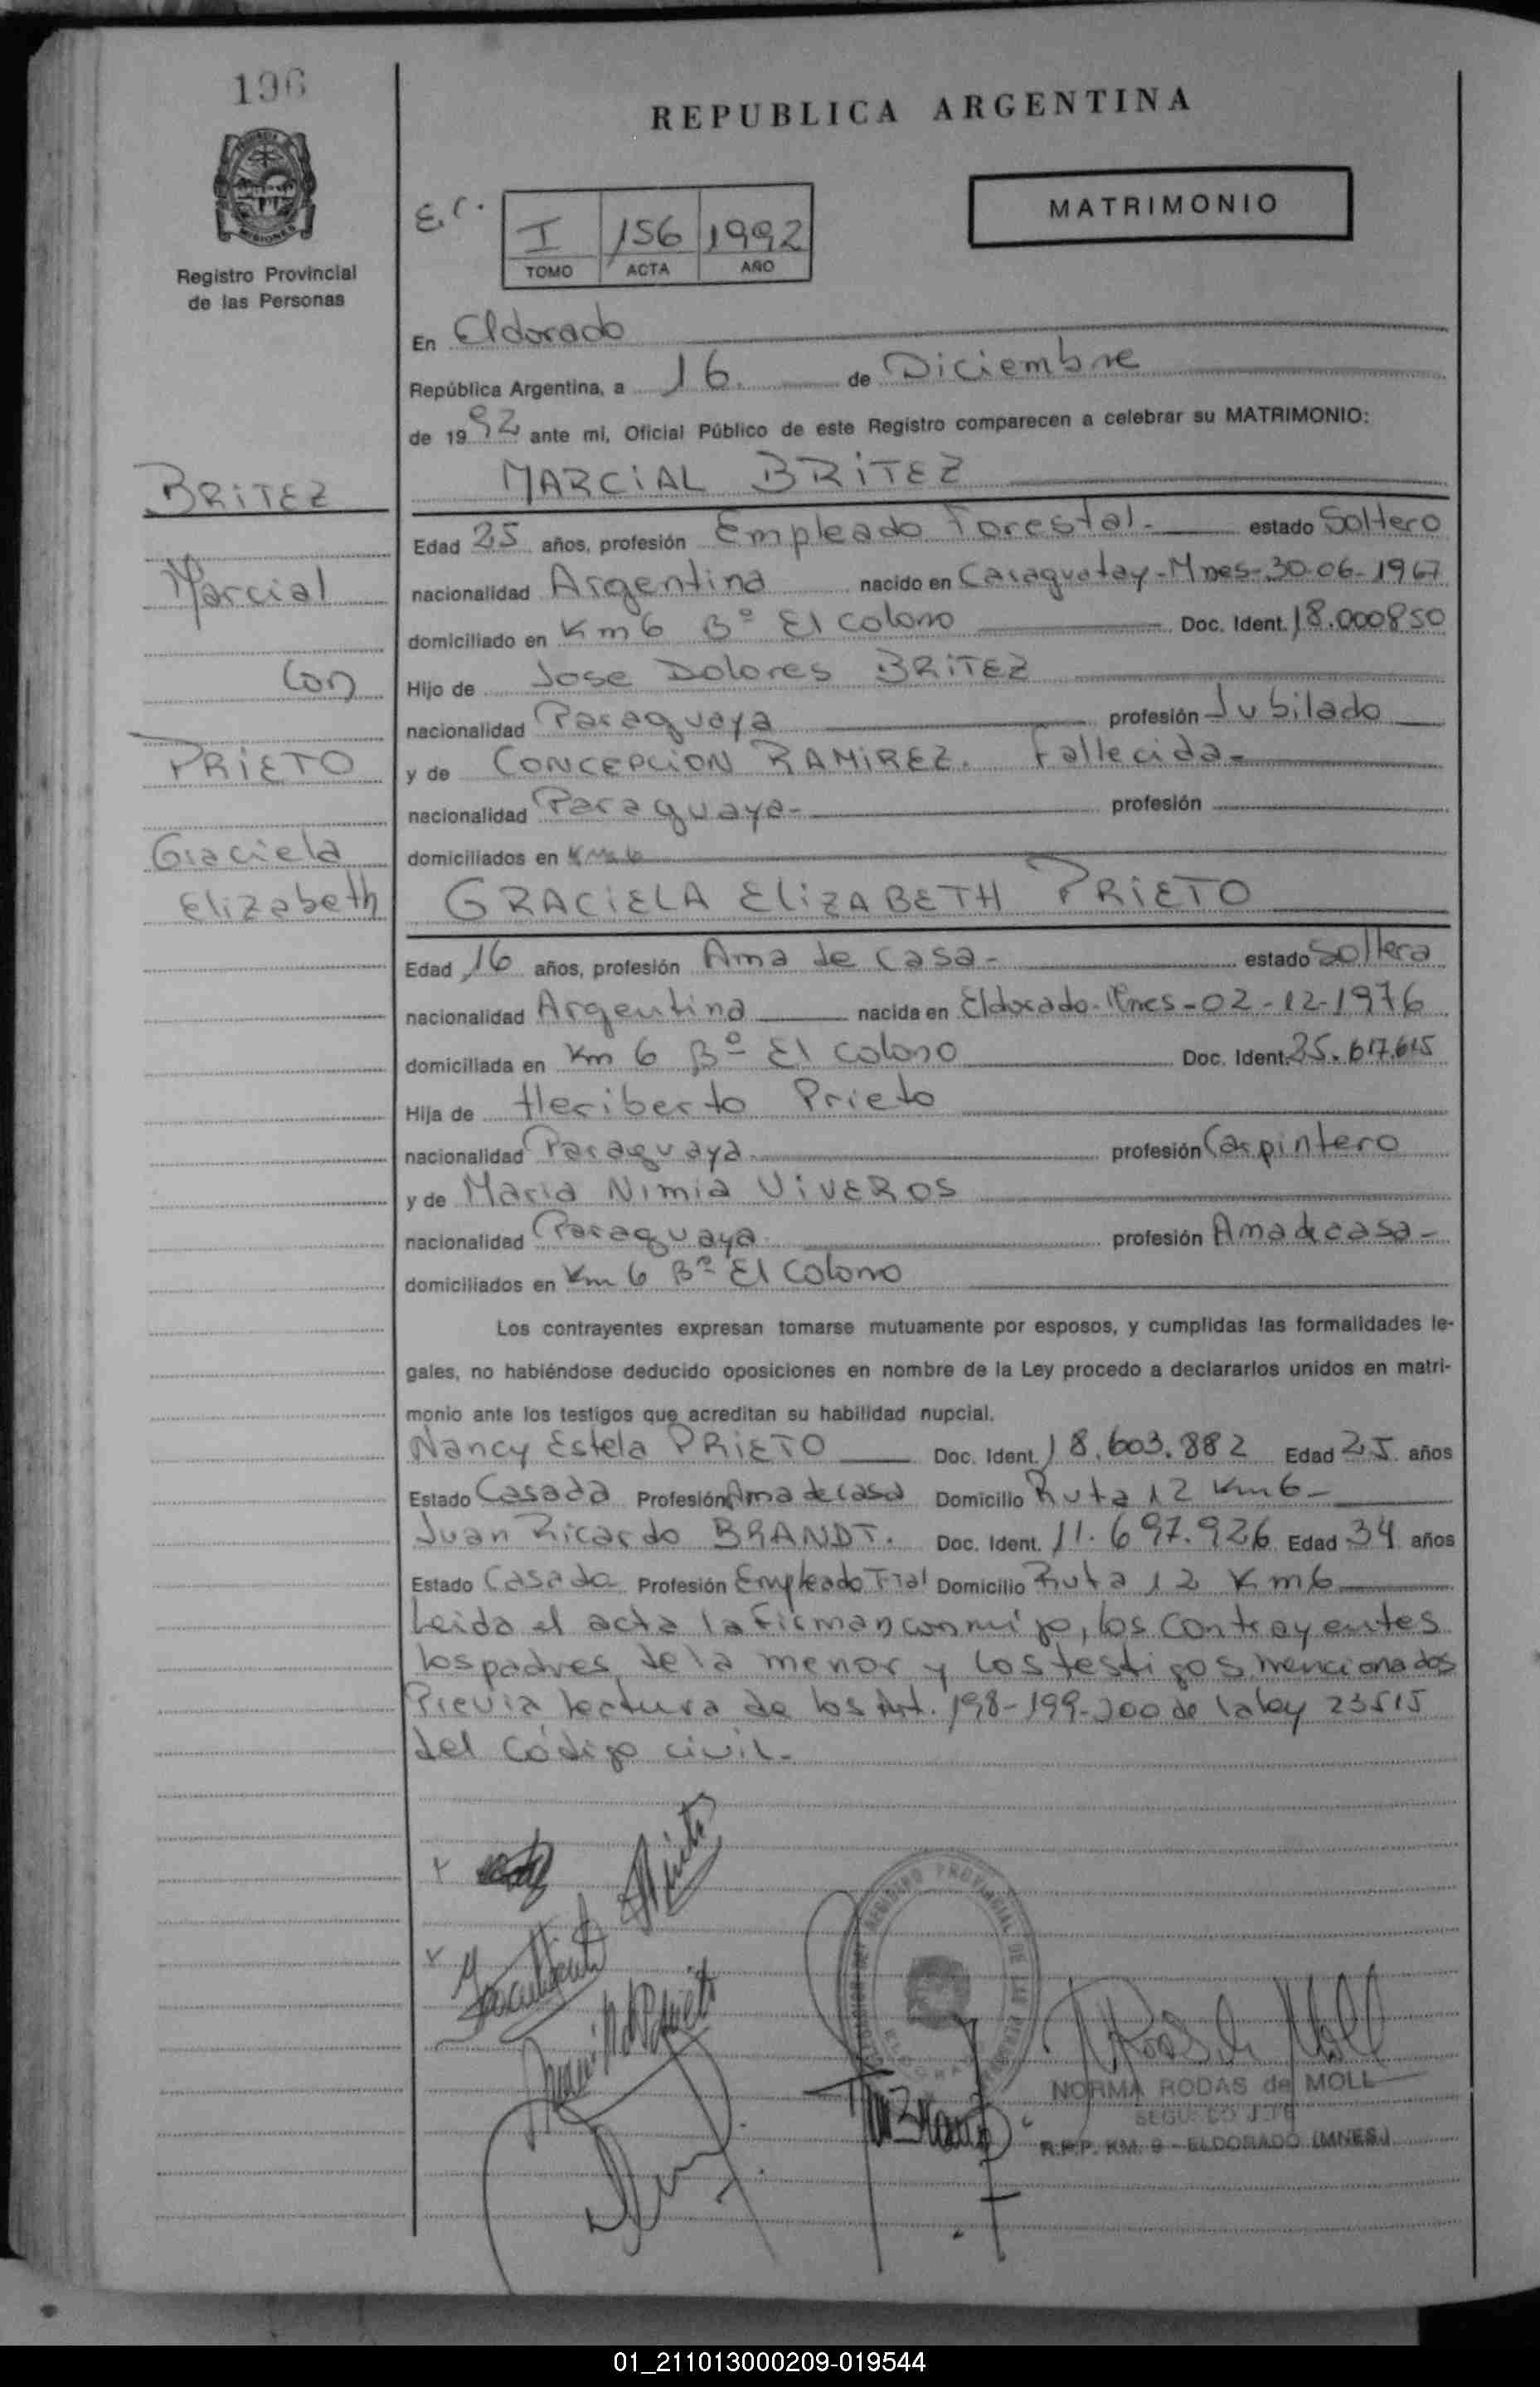 196
REPUBLICA ARGENTINA
MISIONES
Registro Provincial
de las Personas
E.C.
I 156 1992
TOMO ACTA AÑO
MATRIMONIO
En Eldorado
República Argentina, a 16 de Diciembre
de 1992 ante mí, Oficial Público de este Registro comparecen a celebrar su MATRIMONIO:
MARCIAL BRITEZ
BRITEZ
Marcial
Con
PRIETO
Graciela
Elizabeth
Edad 25 años, profesión Empleado Forestal.- estado Soltero
nacionalidad Argentina nacido en Caraguatay-Mnes-30-06-1967
domiciliado en Km 6 Bº El Colono Doc. Ident. 18.000850
Hijo de Jose Dolores BRITEZ
nacionalidad Paraguaya profesión Jubilado
y de CONCEPCION RAMIREZ. Fallecida-
nacionalidad Paraguaya- profesión
domiciliados en Km 6
GRACIELA ELIZABETH PRIETO
Edad 16 años, profesión Ama de Casa- estado Soltera
nacionalidad Argentina nacida en Eldorado-Mnes-02-12-1976
domiciliada en Km 6 Bº El Colono Doc. Ident. 25.617.615
Hija de Heriberto Prieto
nacionalidad Paraguaya profesión Carpintero
y de Maria Nimia VIVEROS
nacionalidad Paraguaya profesión Ama de casa-
domiciliados en Km 6 Bº El Colono
Los contrayentes expresan tomarse mutuamente por esposos, y cumplidas las formalidades le-
gales, no habiéndose deducido oposiciones en nombre de la Ley procedo a declararlos unidos en matri-
monio ante los testigos que acreditan su habilidad nupcial.
Nancy Estela PRIETO Doc. Ident. 18.603.882 Edad 25 años
Estado Casada Profesión Ama de casa Domicilio Ruta 12 Km 6-
Juan Ricardo BRANDT. Doc. Ident. 11.697.926 Edad 34 años
Estado Casado Profesión Empleado Domicilio Ruta 12 Km 6
Leida el acta la Firman conmigo, los Contrayentes
los padres de la menor y los testigos mencionados
Previa lectura de los Art. 198-199-200 de la ley 23515
del Código civil.-
REGISTRO PROVINCIAL DE LAS PERSONAS
NORMA RODAS de MOLL
R.P.P. KM. 9 - ELDORADO (MNES.)
01_211013000209-019544